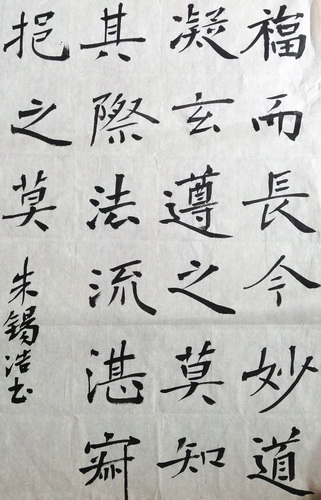 福而長今妙道
凝玄遵之莫知
其際法流湛寂
挹之莫
朱錫浩书